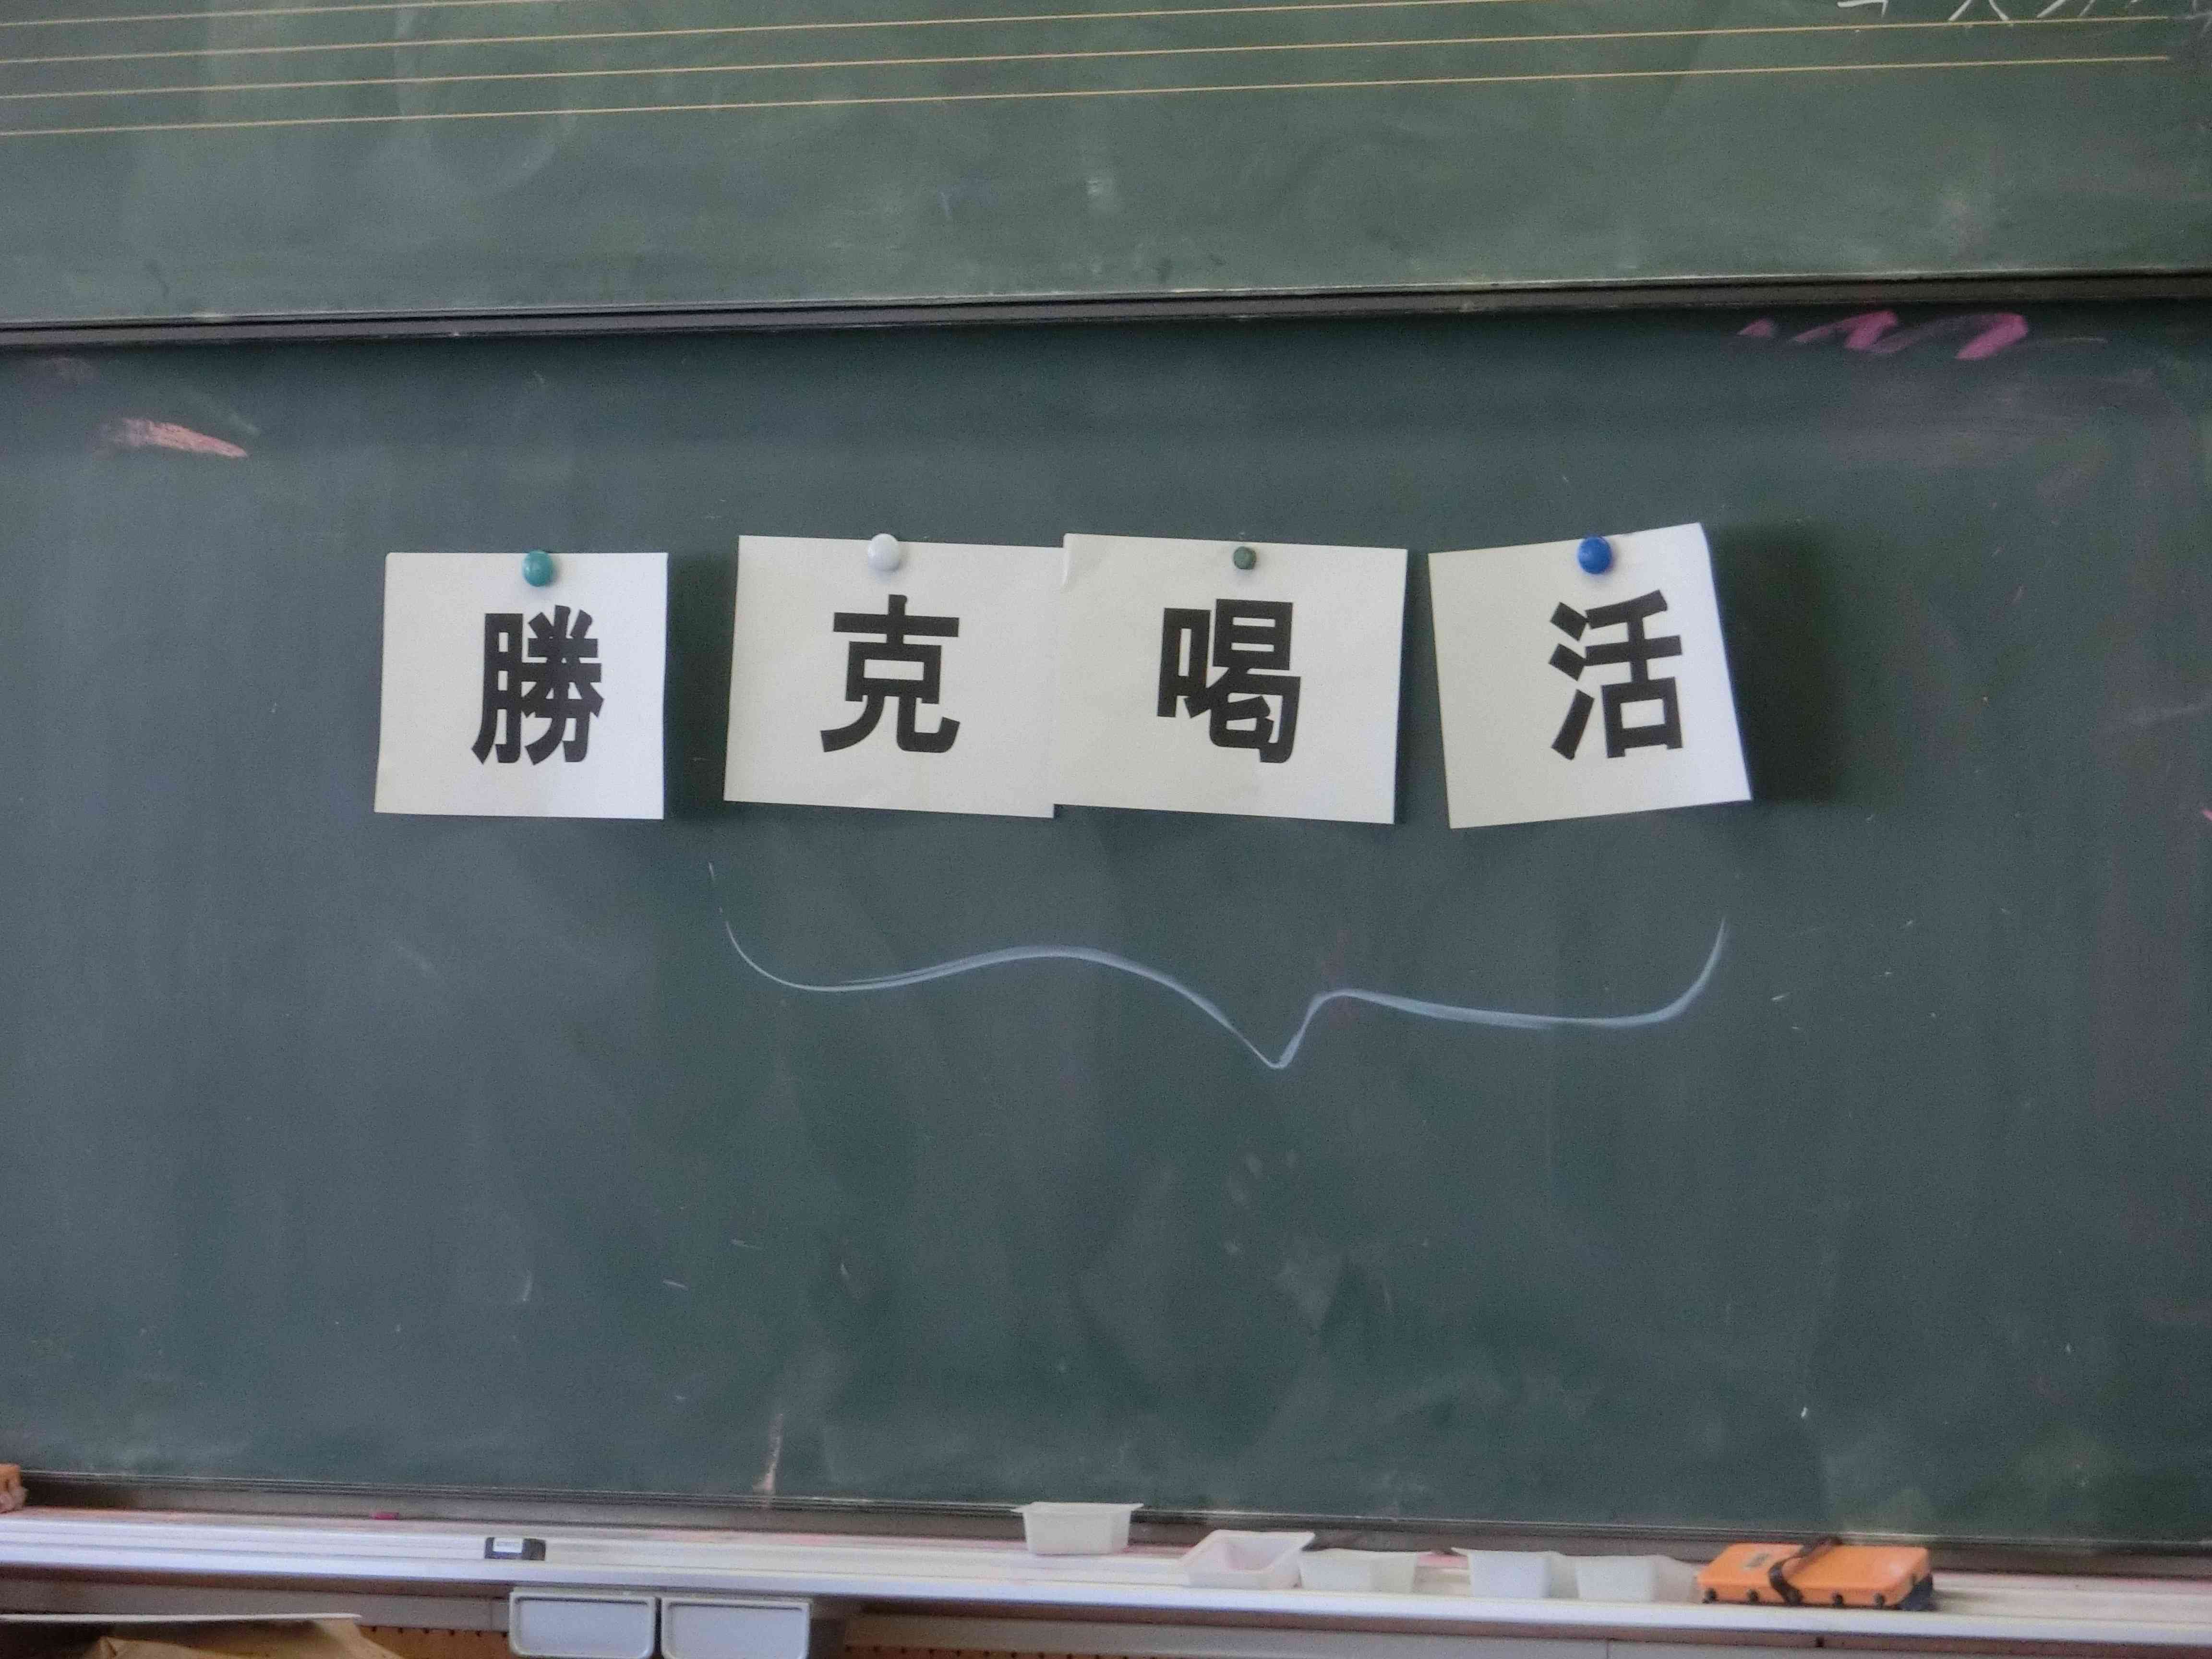 勝 克 喝 活